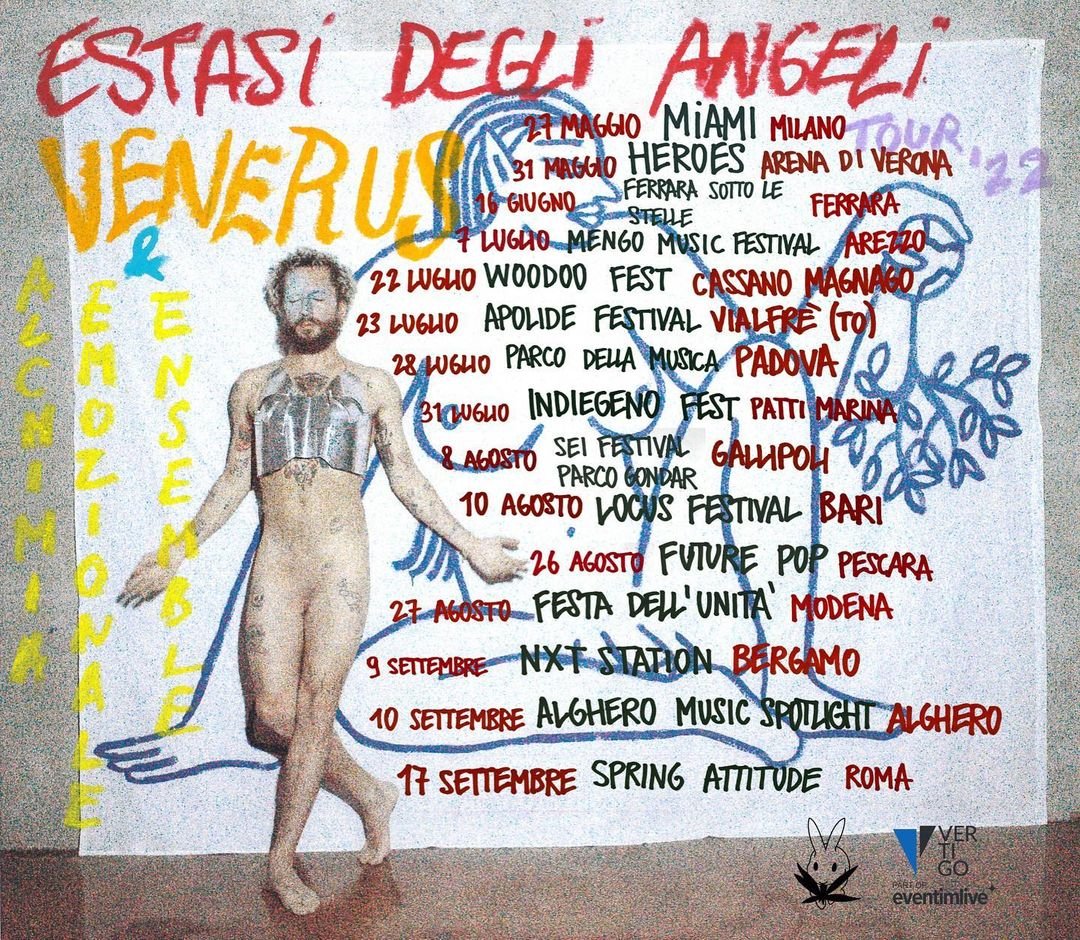 ESTASI DEGLI ANGELI
VENERUS
&
ALCHIMIA
EMOZIONALE
ENSEMBLE
TOUR '22
27 MAGGIO MiAMI MILANO
31 MAGGIO HEROES ARENA DI VERONA
16 GIUGNO FERRARA SOTTO LE
STELLE FERRARA
7 LUGLIO MENGO MUSIC FESTIVAL AREZZO
22 LUGLIO WOODOO FEST CASSANO MAGNAGO
23 LUGLIO APOLIDE FESTIVAL VIALFRÈ (TO)
28 LUGLIO PARCO DELLA MUSICA PADOVA
31 LUGLIO INDIEGENO FEST PATTI MARINA
8 AGOSTO SEI FESTIVAL
PARCO GONDAR GALLIPOLI
10 AGOSTO LOCUS FESTIVAL BARI
26 AGOSTO FUTURE POP PESCARA
27 AGOSTO FESTA DELL'UNITA' MODENA
9 SETTEMBRE NXT STATION BERGAMO
10 SETTEMBRE ALGHERO MUSIC SPOTLIGHT ALGHERO
17 SETTEMBRE SPRING ATTITUDE ROMA
VER
TI
GO
PART OF
eventimlive